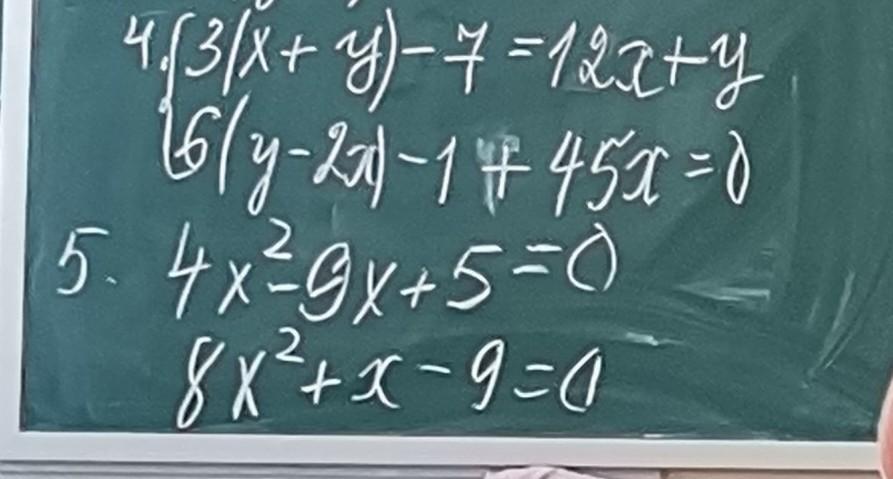 4. { 3(x + y) - 7 = 12x + y
6(y - 2x) - 1 + 45x = 0
5. 4x² - 9x + 5 = 0
8x² + x - 9 = 0